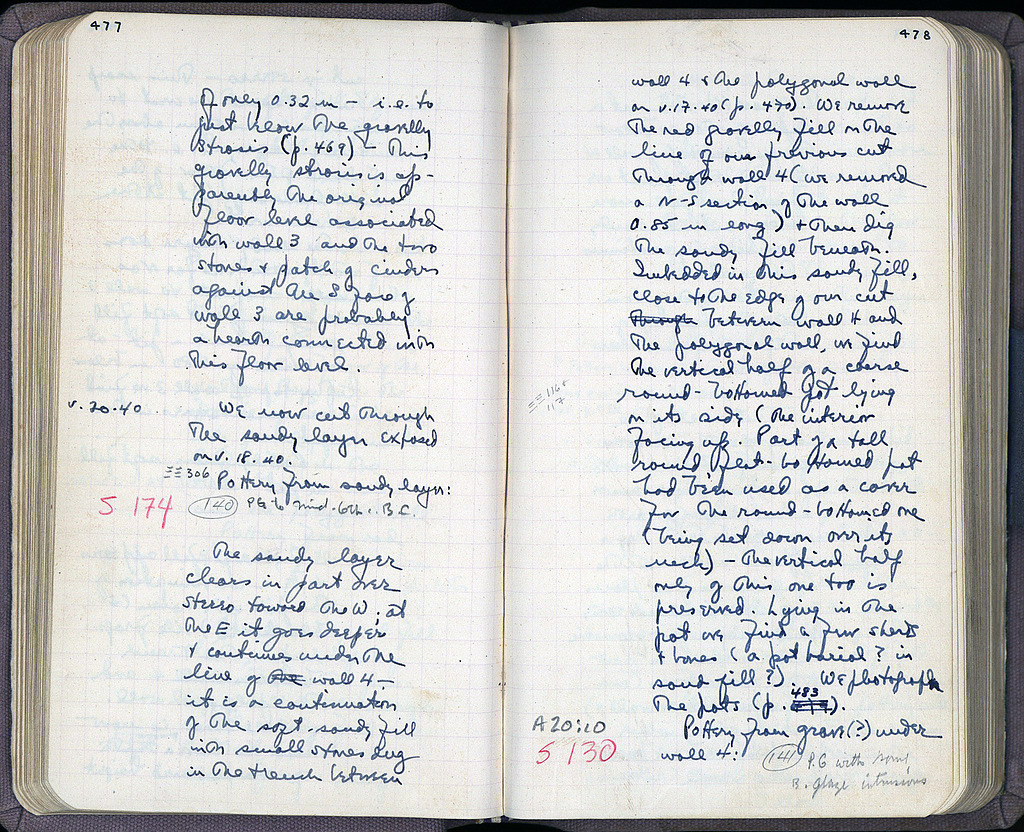 477
of only 0.32 m – i.e. to
just below the gravelly
strosis (p. 469) – This
gravelly strosis is ap-
parently the original
floor level associated
with wall 3 and the two
stones + patch of cinders
against the S face of
wall 3 are probably
a hearth connected with
this floor level.
v. 20.40 We now cut through
the sandy layer exposed
on v. 18.40.
ΞΞ 306 Pottery from sandy layer:
S 174 (140) PG to mid-6th c. B.C.
The sandy layer
clears in part over
stereo toward the W, at
the E it goes deeper
+ continues under the
line of the wall 4 –
it is a continuation
of the soft sandy fill
with small stones dug
in the trench between
478
wall 4 + the polygonal wall
on v.17.40 (p. 470). We remove
the red gravelly fill on the
line of our previous cut
through wall 4 (we removed
a N-S section of the wall
0.85 m long) + then dig
the sandy fill beneath.
Imbedded in this sandy fill,
close to the edge of our cut
through between wall 4 and
the polygonal wall, we find
the vertical half of a coarse
ΞΞ 116 +
117
round-bottomed pot lying
on its side (the interior
facing up. Part of a tall
round flat-bottomed pot
had been used as a cover
for the round-bottomed one
(being set down over its
neck) – the vertical half
only of this one too is
preserved. Lying in the
pot we find a few sherds
+ bones (a pot burial? in
sand fill?). We photograph
the pots (p. 483).
A 20:10
S 130
Pottery from grave(?) under
wall 4: (141) P.G with some
B. glaze intrusions